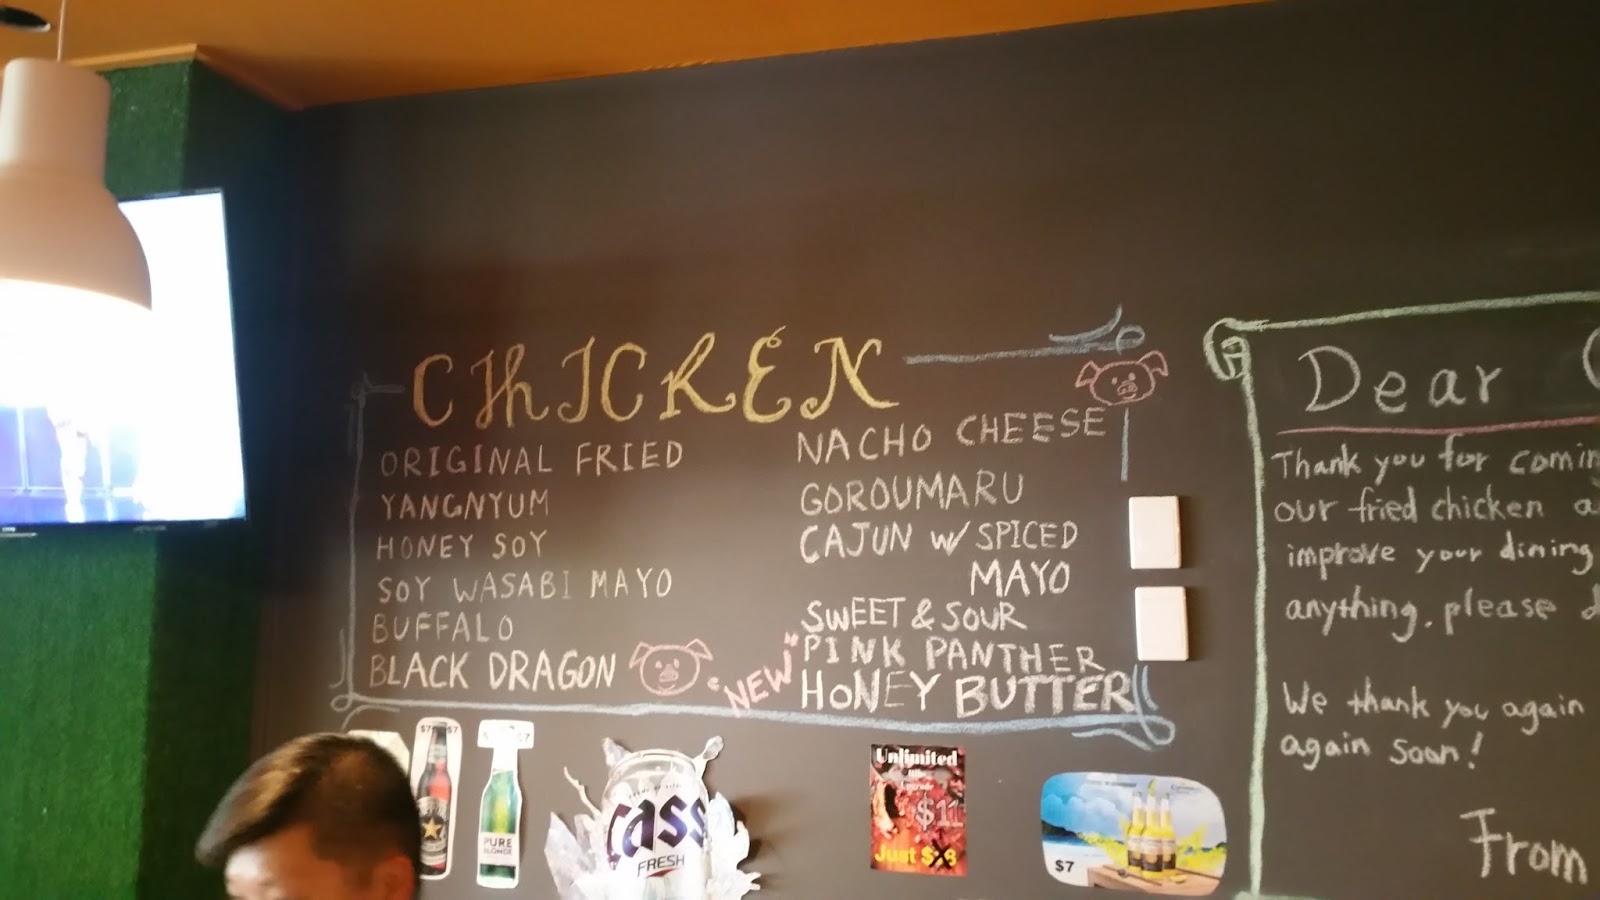 CHICKEN
ORIGINAL FRIED
YANGNYUM
HONEY SOY
SOY WASABI MAYO
BUFFALO
BLACK DRAGON
NACHO CHEESE
GOROUMARU
CAJUN W/ SPICED
MAYO
SWEET & SOUR
PINK PANTHER
"NEW"
HONEY BUTTER
Dear
Thank you for comin
our fried chicken
improve your dining
anything, please
We thank you again
again soon!
From
$7 $7
$7
PURE
BLONDE
cass
FRESH
Unlimited
Upgrade
$11
Just
$7